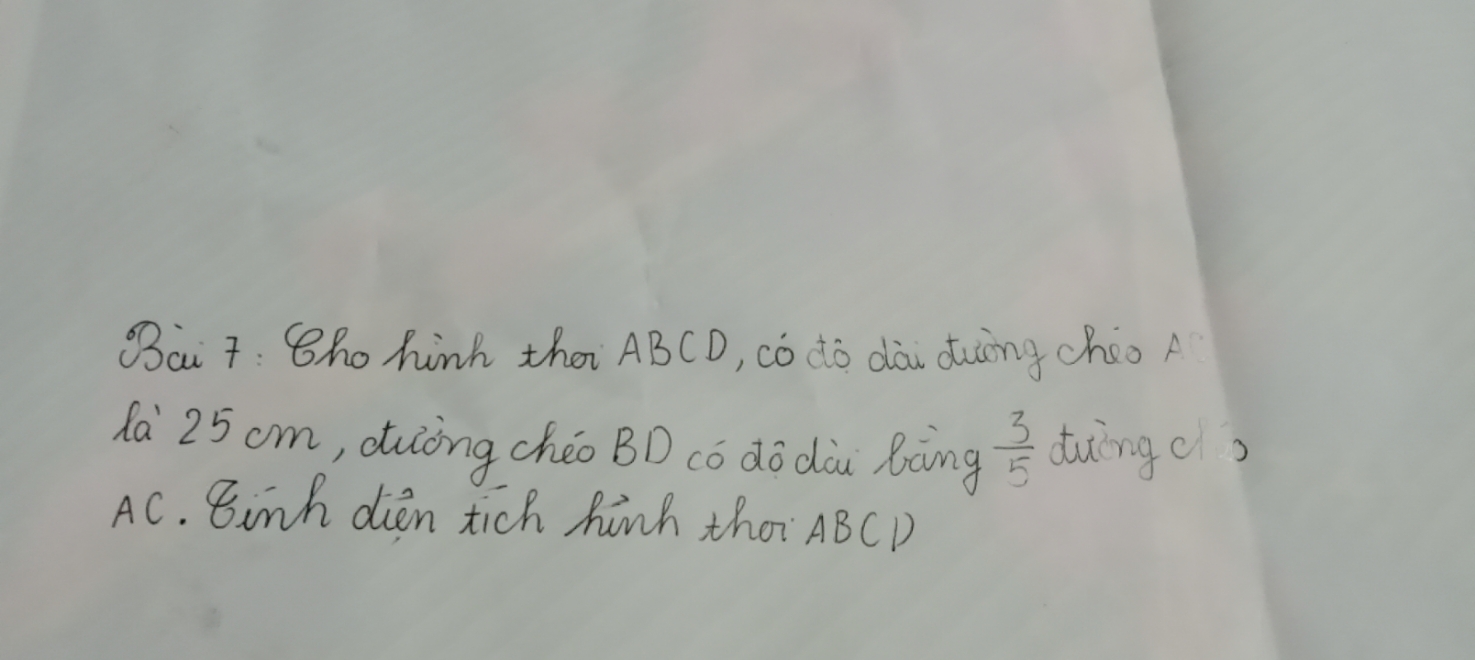 Bài 7: Cho hình thoi ABCD, có độ dài đường chéo AC
là 25 cm, đường chéo BD có độ dài bằng 3/5 đường chéo
AC. Tính diện tích hình thoi ABCD